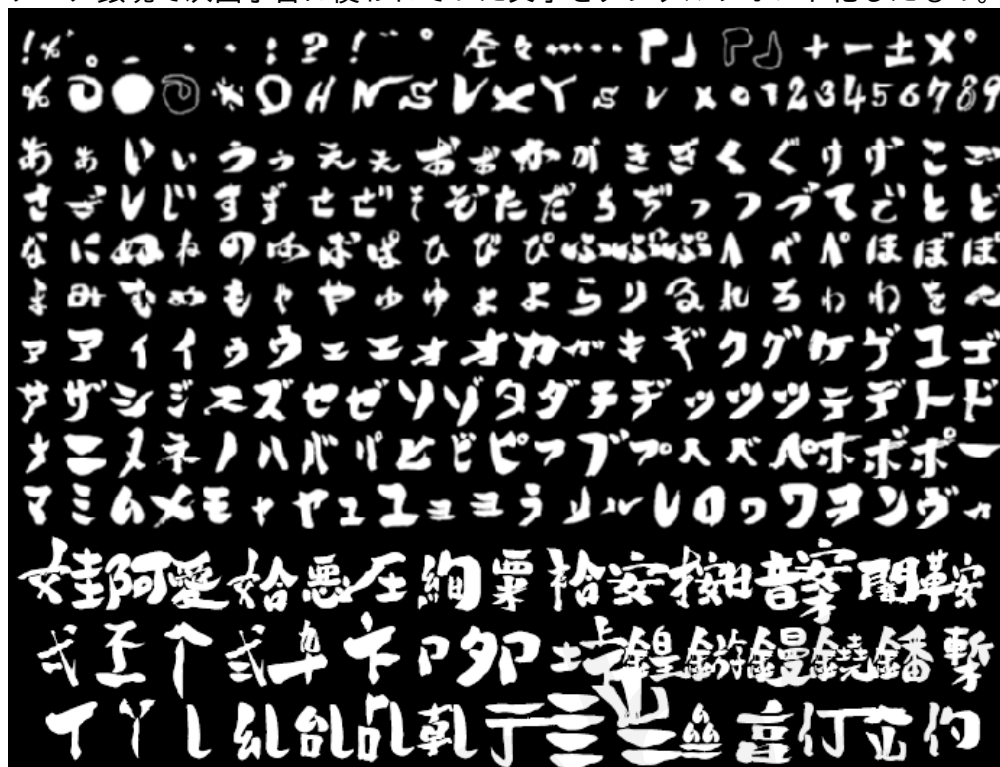 ! % ゜ 。 _ ・ ・ : ? ! ¨ ° 仝 々 …… 「 」 『 』 + ー ± × °
% ◎ ● ◎ ※ O H N S V X Y s v x 0 1 2 3 4 5 6 7 8 9
あ ぁ い ぃ う ぅ え ぇ お ぉ か が き ぎ く ぐ け げ こ ご
さ ざ し じ す ず せ ぜ そ ぞ た だ ち ぢ っ つ づ て で と ど
な に ぬ ね の は ば ぱ ひ び ぴ ふ ぶ ぷ へ べ ぺ ほ ぼ ぽ
ま み む め も ゃ や ゅ ゆ ょ よ ら り る れ ろ ゎ わ を ん
ァ ア ィ イ ゥ ウ ェ エ ォ オ カ ガ キ ギ ク グ ケ ゲ コ ゴ
サ ザ シ ジ ス ズ セ ゼ ソ ゾ タ ダ チ ヂ ッ ツ ヅ テ デ ト ド
ナ ニ ヌ ネ ノ ハ バ パ ヒ ビ ピ フ ブ プ ヘ ベ ペ ホ ボ ポ ー
マ ミ ム メ モ ャ ヤ ュ ユ ョ ヨ ラ リ ル レ ロ ヮ ワ ヲ ン ヴ ヵ
娃 阿 愛 姶 悪 圧 絢 粟 袷 安 按 音 案 闇 鞍
弍 丕 个 弐 卑 卞 卩 卯 圷 鍠 鏝 鐃 鐇 塹
丁 丫 乚 乱 亄 亍 亖 亝 亠 仃 仢